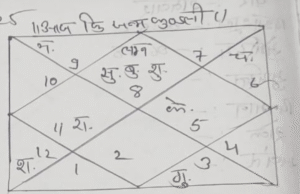 ॥ जन्म कुण्डली ॥
लग्न
9
7
10
सु. बु. शु.
6
8
के.
11 रा.
5
श. 12
2
4
1
3
गु.